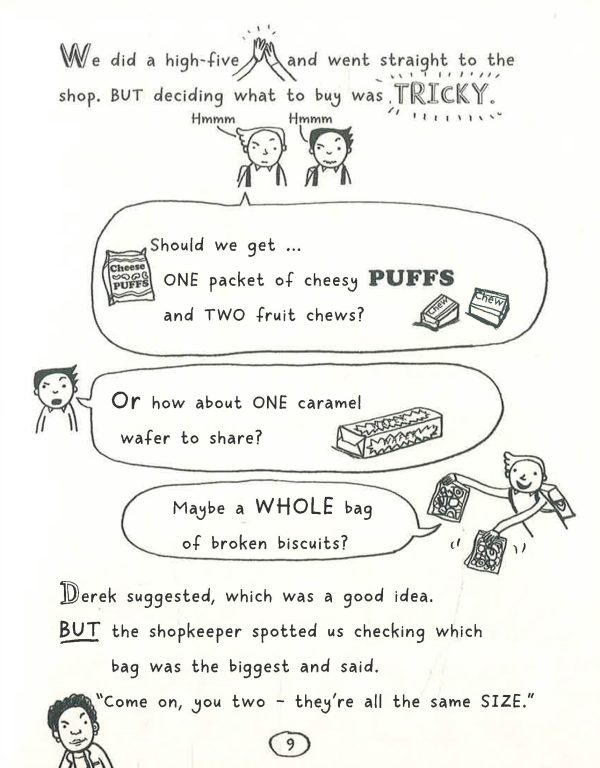 We did a high-five and went straight to the
shop. BUT deciding what to buy was TRICKY.
Hmmm Hmmm
Should we get ...
Cheese
PUFFS
ONE packet of cheesy PUFFS
and TWO fruit chews?
Chew Chew
Or how about ONE caramel
wafer to share?
Maybe a WHOLE bag
of broken biscuits?
Derek suggested, which was a good idea.
BUT the shopkeeper spotted us checking which
bag was the biggest and said.
"Come on, you two – they're all the same SIZE."
9